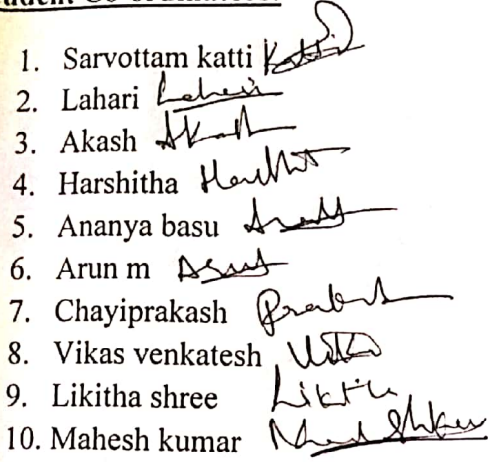 Co-ordinators:
1. Sarvottam katti Katti
2. Lahari Lahari
3. Akash Akash
4. Harshitha Harshit
5. Ananya basu
6. Arun m Arun
7. Chayiprakash Prakash
8. Vikas venkatesh Vikas
9. Likitha shree Likitha
10. Mahesh kumar